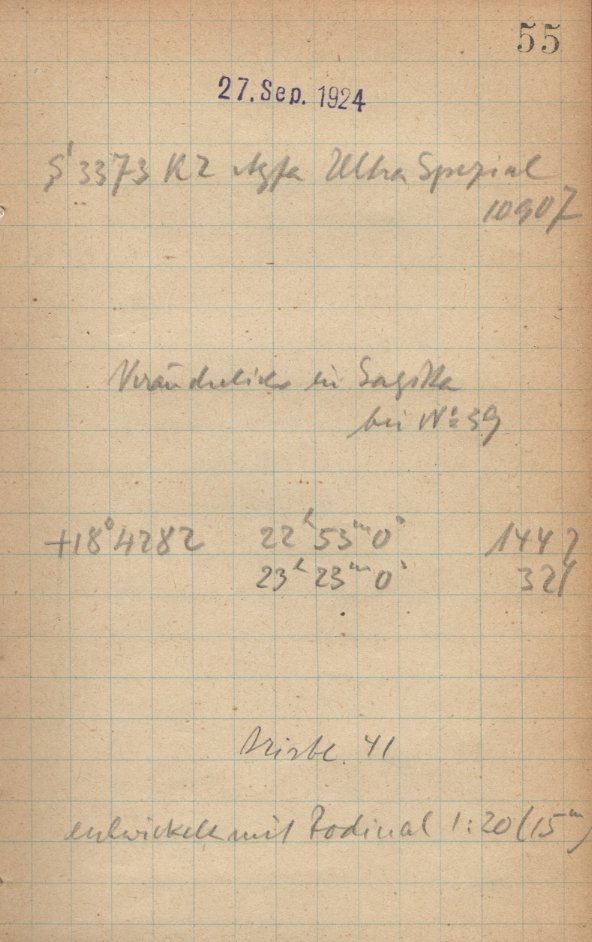 55
27. Sep. 1924
S' 3373 RZ Agfa Ultra Spezial
10907
Veränderlicher in Sagitta
bei No 59
+18°4282 22h 53m 0s 1442
23h 23m 0s 321
41
entwickelt mit Rodinal 1:20 (15m)